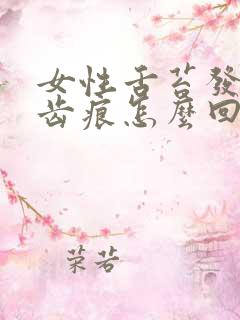 女性舌苔發
齒痕怎麼回
荣若